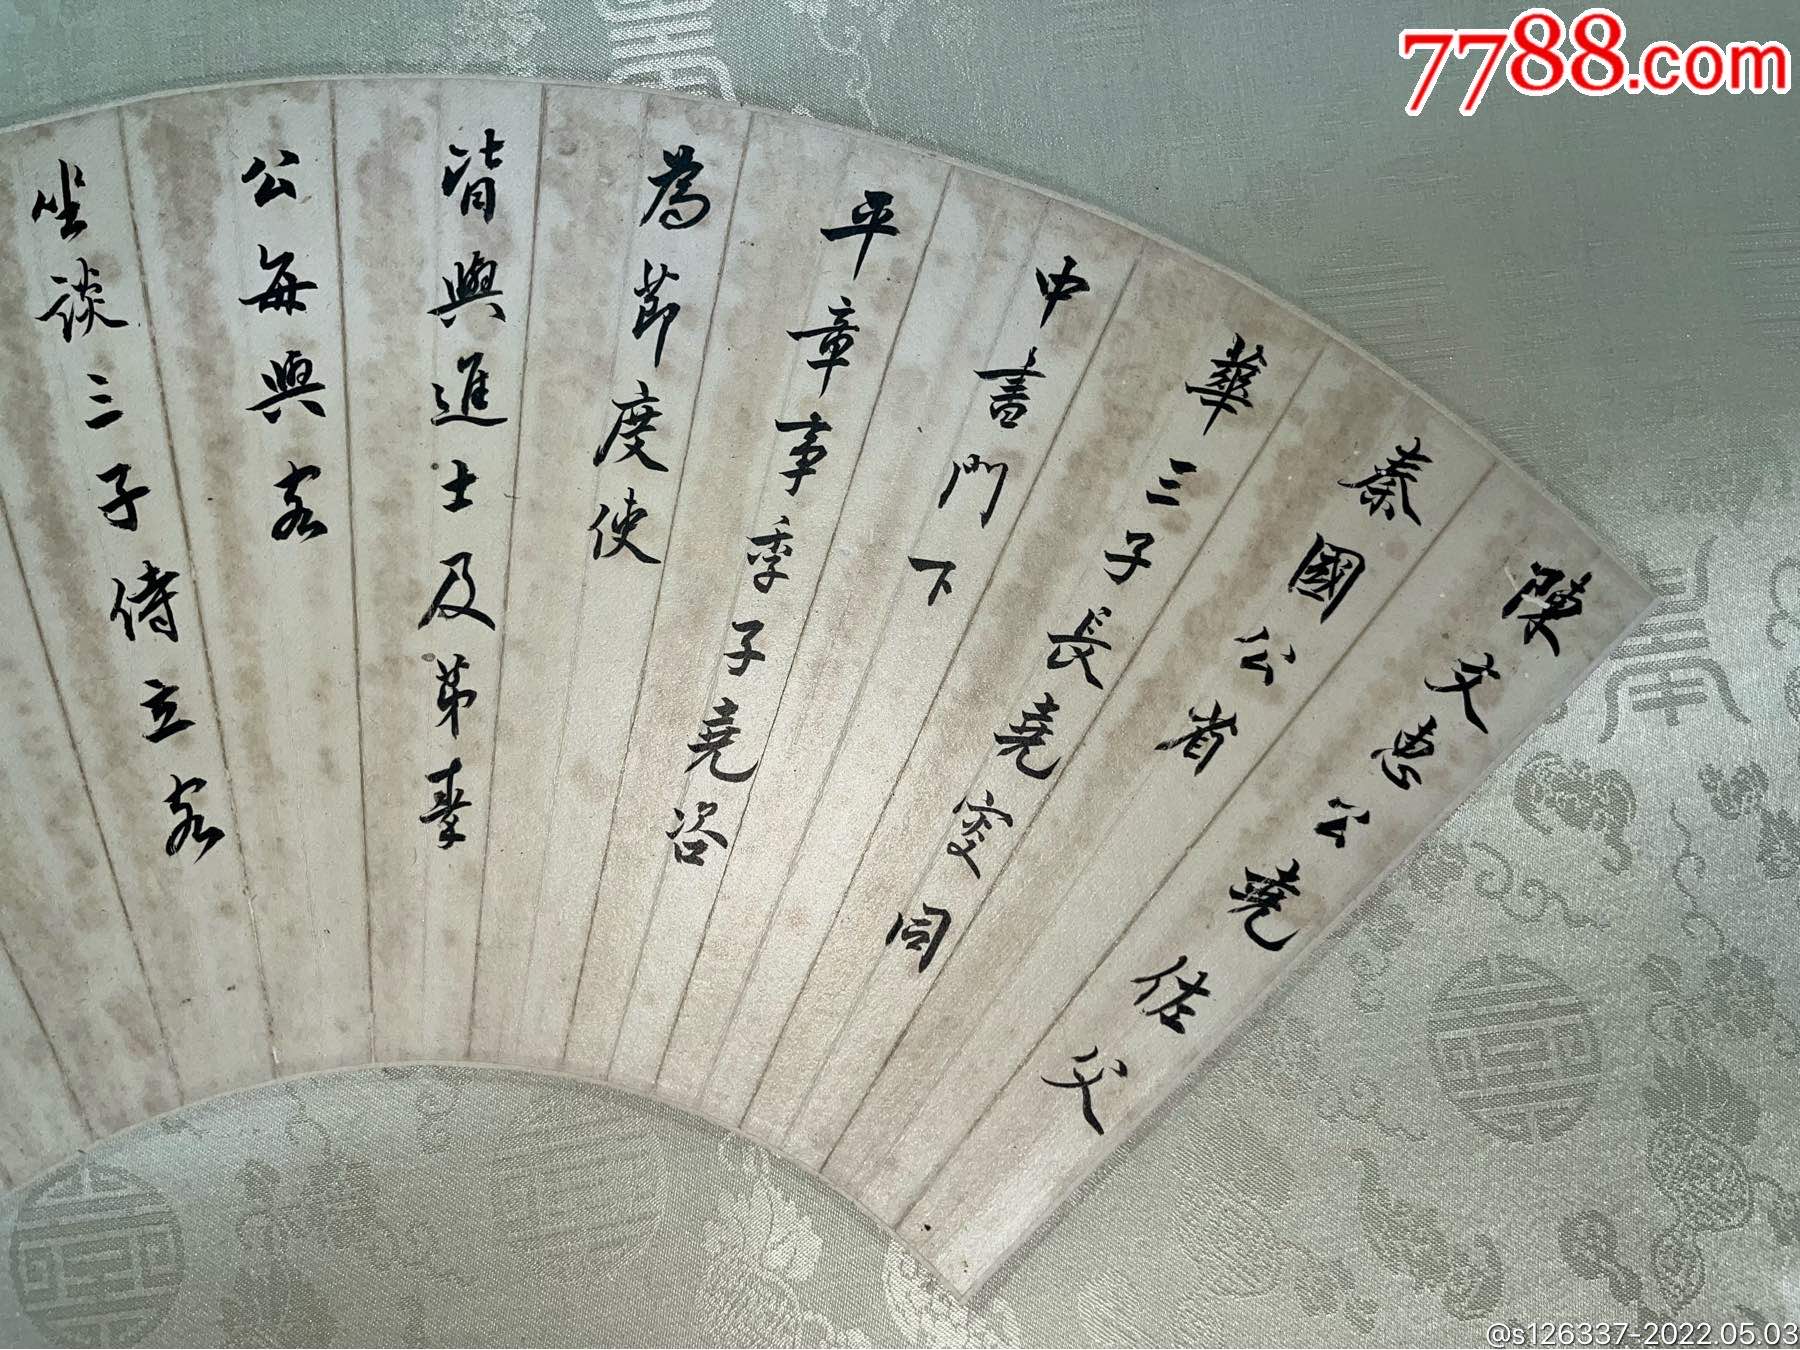 陳文惠公堯佐父
秦國公省
華三子長堯叟同
中書門下
平章事季子堯咨
為節度使
皆與進士及第秦
公每與客
坐談三子侍立客
7788.com
@s126337-2022.05.03